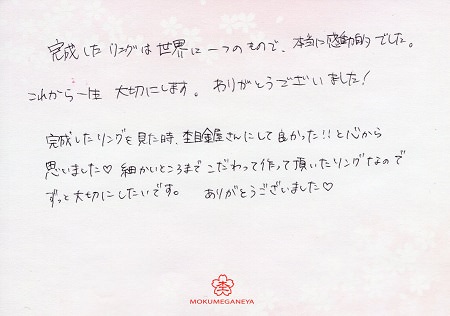 完成したリングは世界に一つのもので、本当に感動的でした。
これから一生 大切にします。ありがとうございました!
完成したリングを見た時、杢目金屋さんにして良かった!!と心から
思いました♡ 細かいところまでこだわって作って頂いたリングなので
ずっと大切にしたいです。 ありがとうございました♡
杢
MOKUMEGANEYA